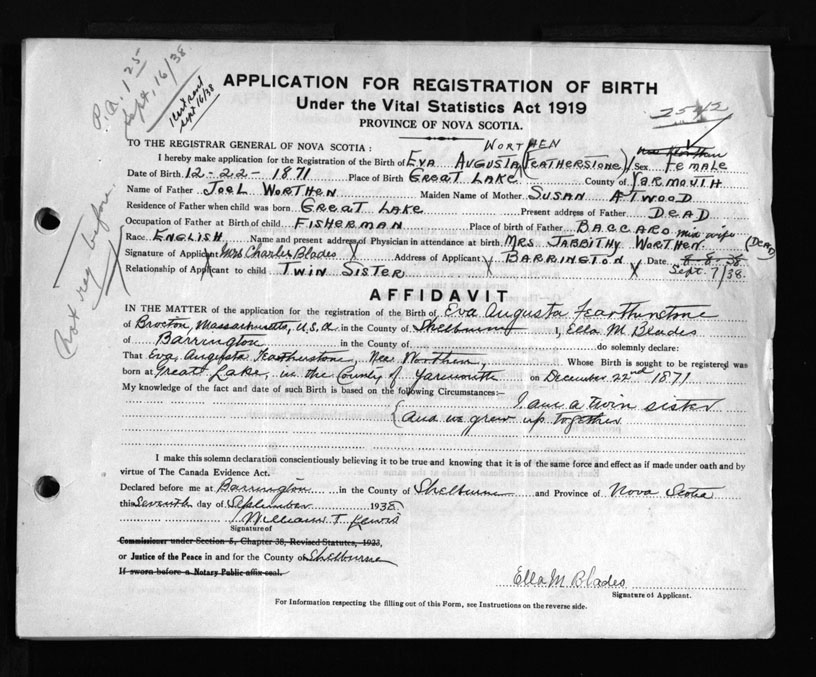 P.A. 1 25
Sept. 16/38
Sept 16/38
25412
Not reg before.
APPLICATION FOR REGISTRATION OF BIRTH
Under the Vital Statistics Act 1919
PROVINCE OF NOVA SCOTIA.
TO THE REGISTRAR GENERAL OF NOVA SCOTIA :
WORTHEN
I hereby make application for the Registration of the Birth of EVA AUGUSTA (FEATHERSTONE) Sex FEMALE
Date of Birth 12-22-1871 Place of Birth GREAT LAKE County of YARMOUTH
Name of Father JOEL WORTHEN Maiden Name of Mother SUSAN ATWOOD
Residence of Father when child was born GREAT LAKE Present address of Father DEAD
Occupation of Father at Birth of child FISHERMAN Place of birth of Father BACCARO
Race ENGLISH Name and present address of Physician in attendance at birth MRS TABBITHY WORTHEN. mid wife (DEAD)
Signature of Applicant Mrs Charles Blades Address of Applicant BARRINGTON Date 8-8-38
Relationship of Applicant to child TWIN SISTER Sept. 7/38.
AFFIDAVIT
IN THE MATTER of the application for the registration of the Birth of Eva Augusta Fearthurstone
of Brocton, Massachusetts, U.S.A. in the County of Shelburne I, Ella M Blades
of Barrington in the County of do solemnly declare:
That Eva Augusta Featherstone, Nee Worthen, Whose Birth is sought to be registered was
born at Great Lake, in the County of Yarmouth on December 22nd 1871
My knowledge of the fact and date of such Birth is based on the following Circumstances:—
I am a twin sister
and we grew up together
I make this solemn declaration conscientiously believing it to be true and knowing that it is of the same force and effect as if made under oath and by
virtue of The Canada Evidence Act.
Declared before me at Barrington in the County of Shelburne and Province of Nova Scotia
this Seventh day of September 1938
William T Lewis
Signature of
Commissioner under Section 5, Chapter 38, Revised Statutes, 1923,
or Justice of the Peace in and for the County of Shelburne
If sworn before a Notary Public affix seal.
Ella M Blades
Signature of Applicant.
For Information respecting the filling out of this Form, see Instructions on the reverse side.